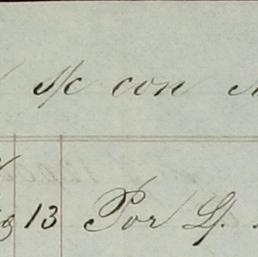 s/c con
13 Por Lf.